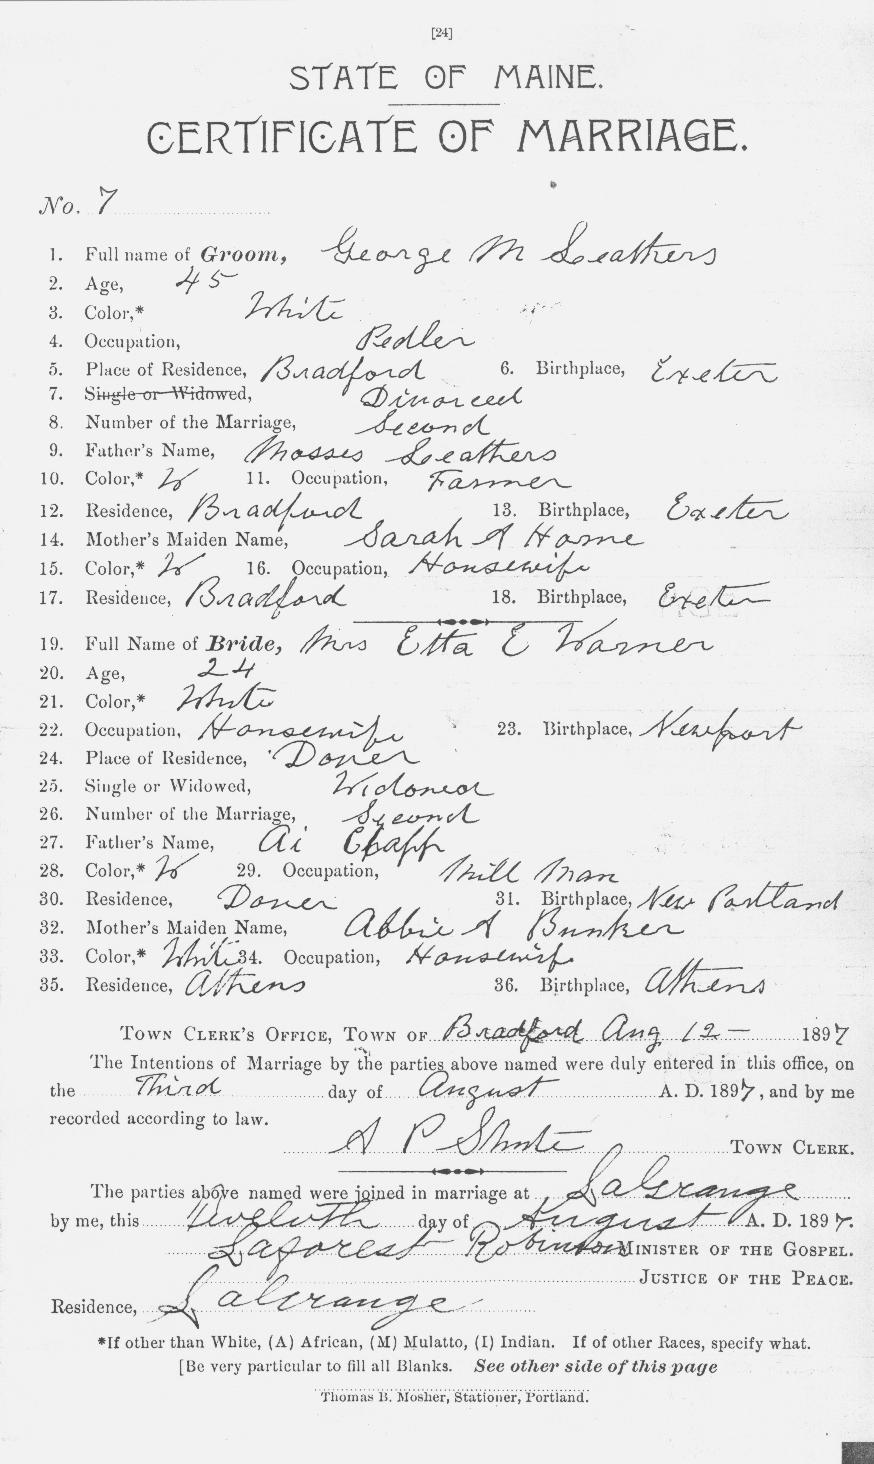 [24]
STATE OF MAINE.
CERTIFICATE OF MARRIAGE.
No. 7
1. Full name of Groom, George M Leathers
2. Age, 45
3. Color,* White
4. Occupation, Pedler
5. Place of Residence, Bradford 6. Birthplace, Exeter
7. Single or Widowed, Divorced
8. Number of the Marriage, Second
9. Father's Name, Mosses Leathers
10. Color,* W 11. Occupation, Farmer
12. Residence, Bradford 13. Birthplace, Exeter
14. Mother's Maiden Name, Sarah A Horne
15. Color,* W 16. Occupation, Housewife
17. Residence, Bradford 18. Birthplace, Exeter
19. Full Name of Bride, Mrs Etta E Warner
20. Age, 24
21. Color,* White
22. Occupation, Housewife 23. Birthplace, Newport
24. Place of Residence, Dover
25. Single or Widowed, Widowed
26. Number of the Marriage, Second
27. Father's Name, Ai Clapp
28. Color,* W 29. Occupation, Mill Man
30. Residence, Dover 31. Birthplace, New Portland
32. Mother's Maiden Name, Abbie A Bunker
33. Color,* White 34. Occupation, Housewife
35. Residence, Athens 36. Birthplace, Athens
TOWN CLERK'S OFFICE, TOWN OF Bradford Aug 12 — 1897
The Intentions of Marriage by the parties above named were duly entered in this office, on
the Third day of August A. D. 1897, and by me
recorded according to law.
A P Shute TOWN CLERK.
The parties above named were joined in marriage at LaGrange
by me, this Twelvth day of August A. D. 1897.
Laforest Robinson MINISTER OF THE GOSPEL.
JUSTICE OF THE PEACE.
Residence, LaGrange
*If other than White, (A) African, (M) Mulatto, (I) Indian. If of other Races, specify what.
[Be very particular to fill all Blanks. See other side of this page
Thomas B. Mosher, Stationer, Portland.